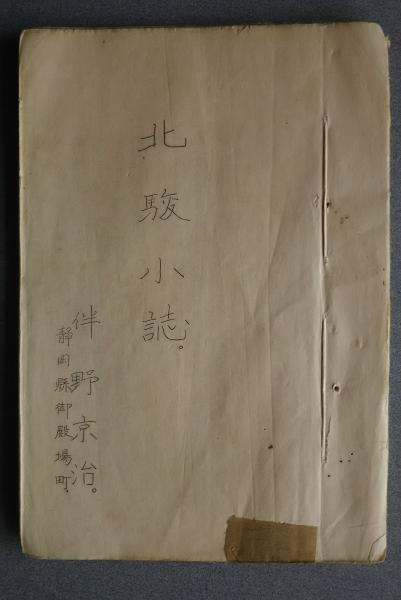 北駿小誌。
伴野京治。
静岡縣御殿場町、